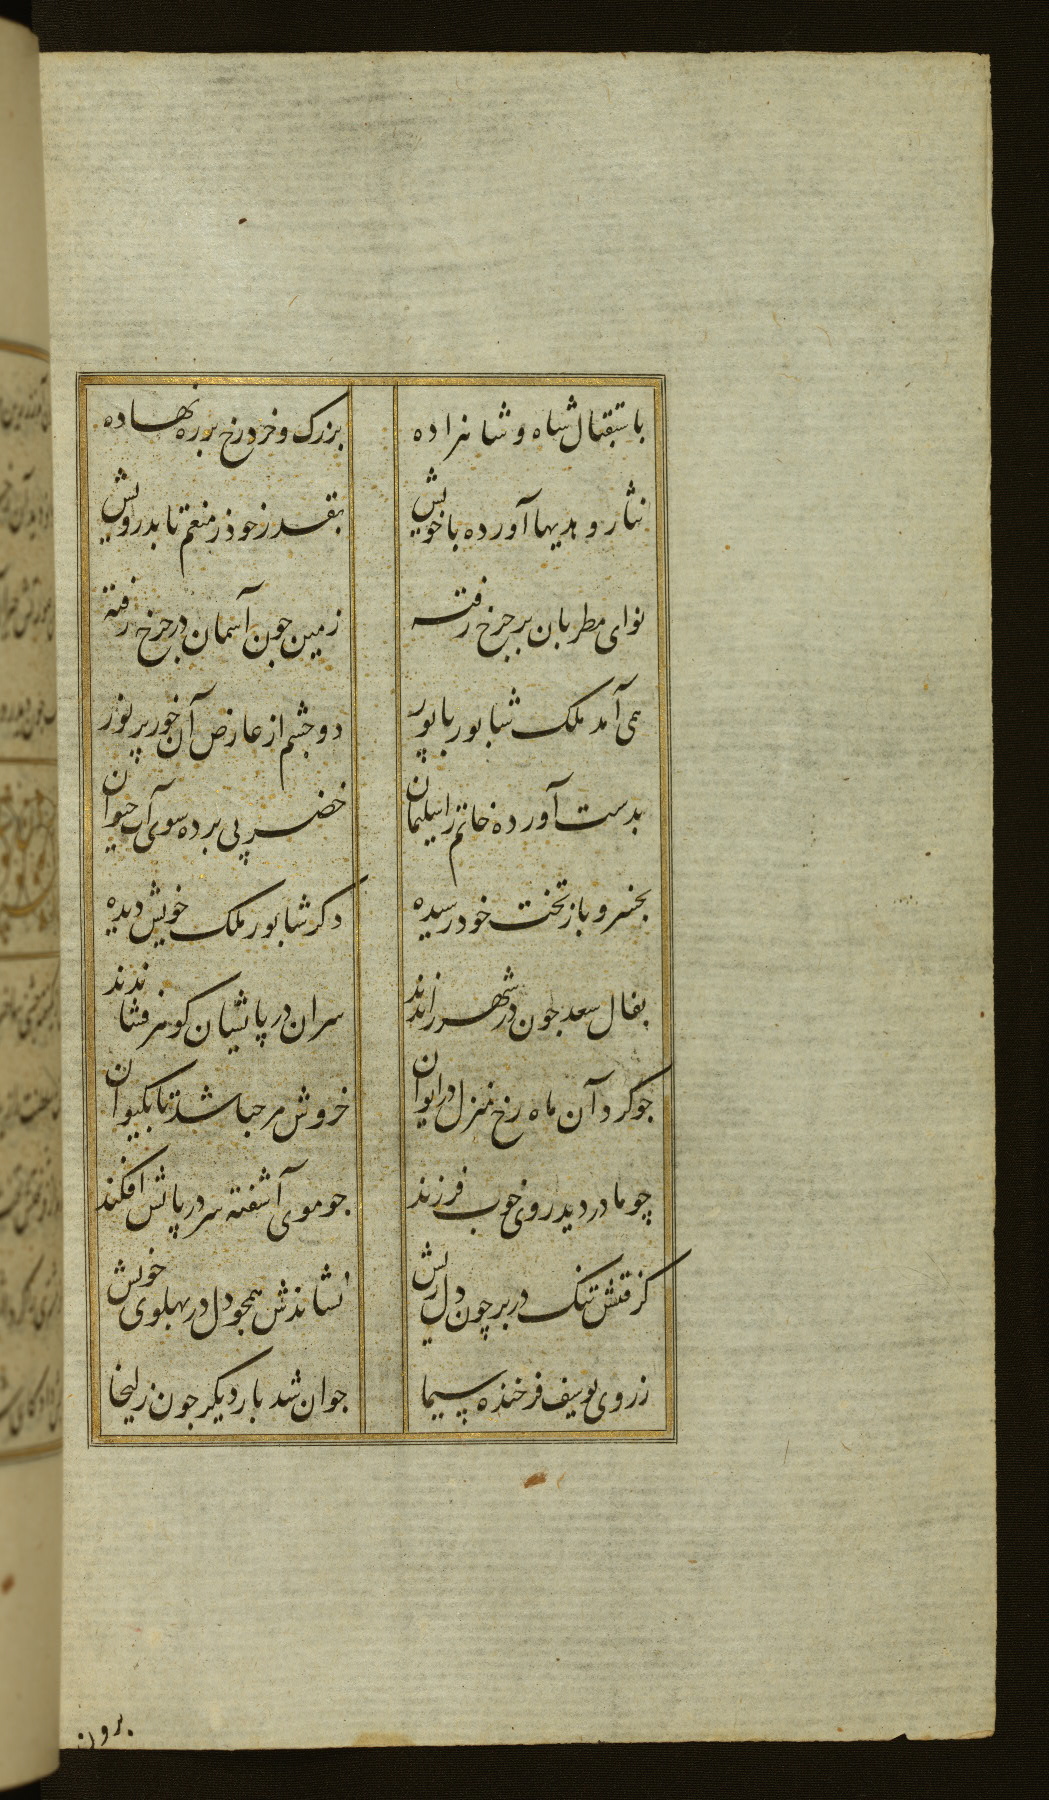 باستقبال شاه و شاهزاده بزرک و خرد رخ برره نهاده
نثار و هدیها آورده با خویش بقدر زحود ز منعم تا بدرویش
نوای مطربان بر چرخ رفته زمین جون آسمان در جرخ رفته
همی آمد ملک شابور با پور دو جشم از عارض آن خور پر نور
بدست آورده خاتم را سلیمان خضر پی برده سوی آب حیوان
بخسرو باز تخت خود رسیده دکر شابور ملک خویش دیده
بفال سعد جون در شهر راندند سران در پایشان کوهر فشاندند
جو کرد آن ماه رخ منزل در ایوان خروش مرحبا شد تا بکیوان
چو مادر دید روی خوب فرزند جو موی آشفته سر در پاش افکند
کرفتش تنک در بر چون دل ریش نشاندش همجو دل در پهلوی خویش
ز روی یوسف فرخنده سیما جوان شد بار دیکر جون زلیخا
برون